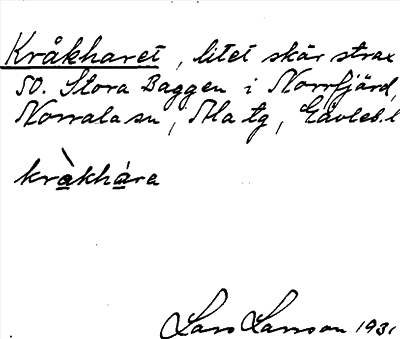 Kråkharet, litet skär strax
SO. Stora Baggen i Norrfjärd,
Norrala sn, Ala tg, Gävleb. l
kràkhára
Lars Larsson 1931